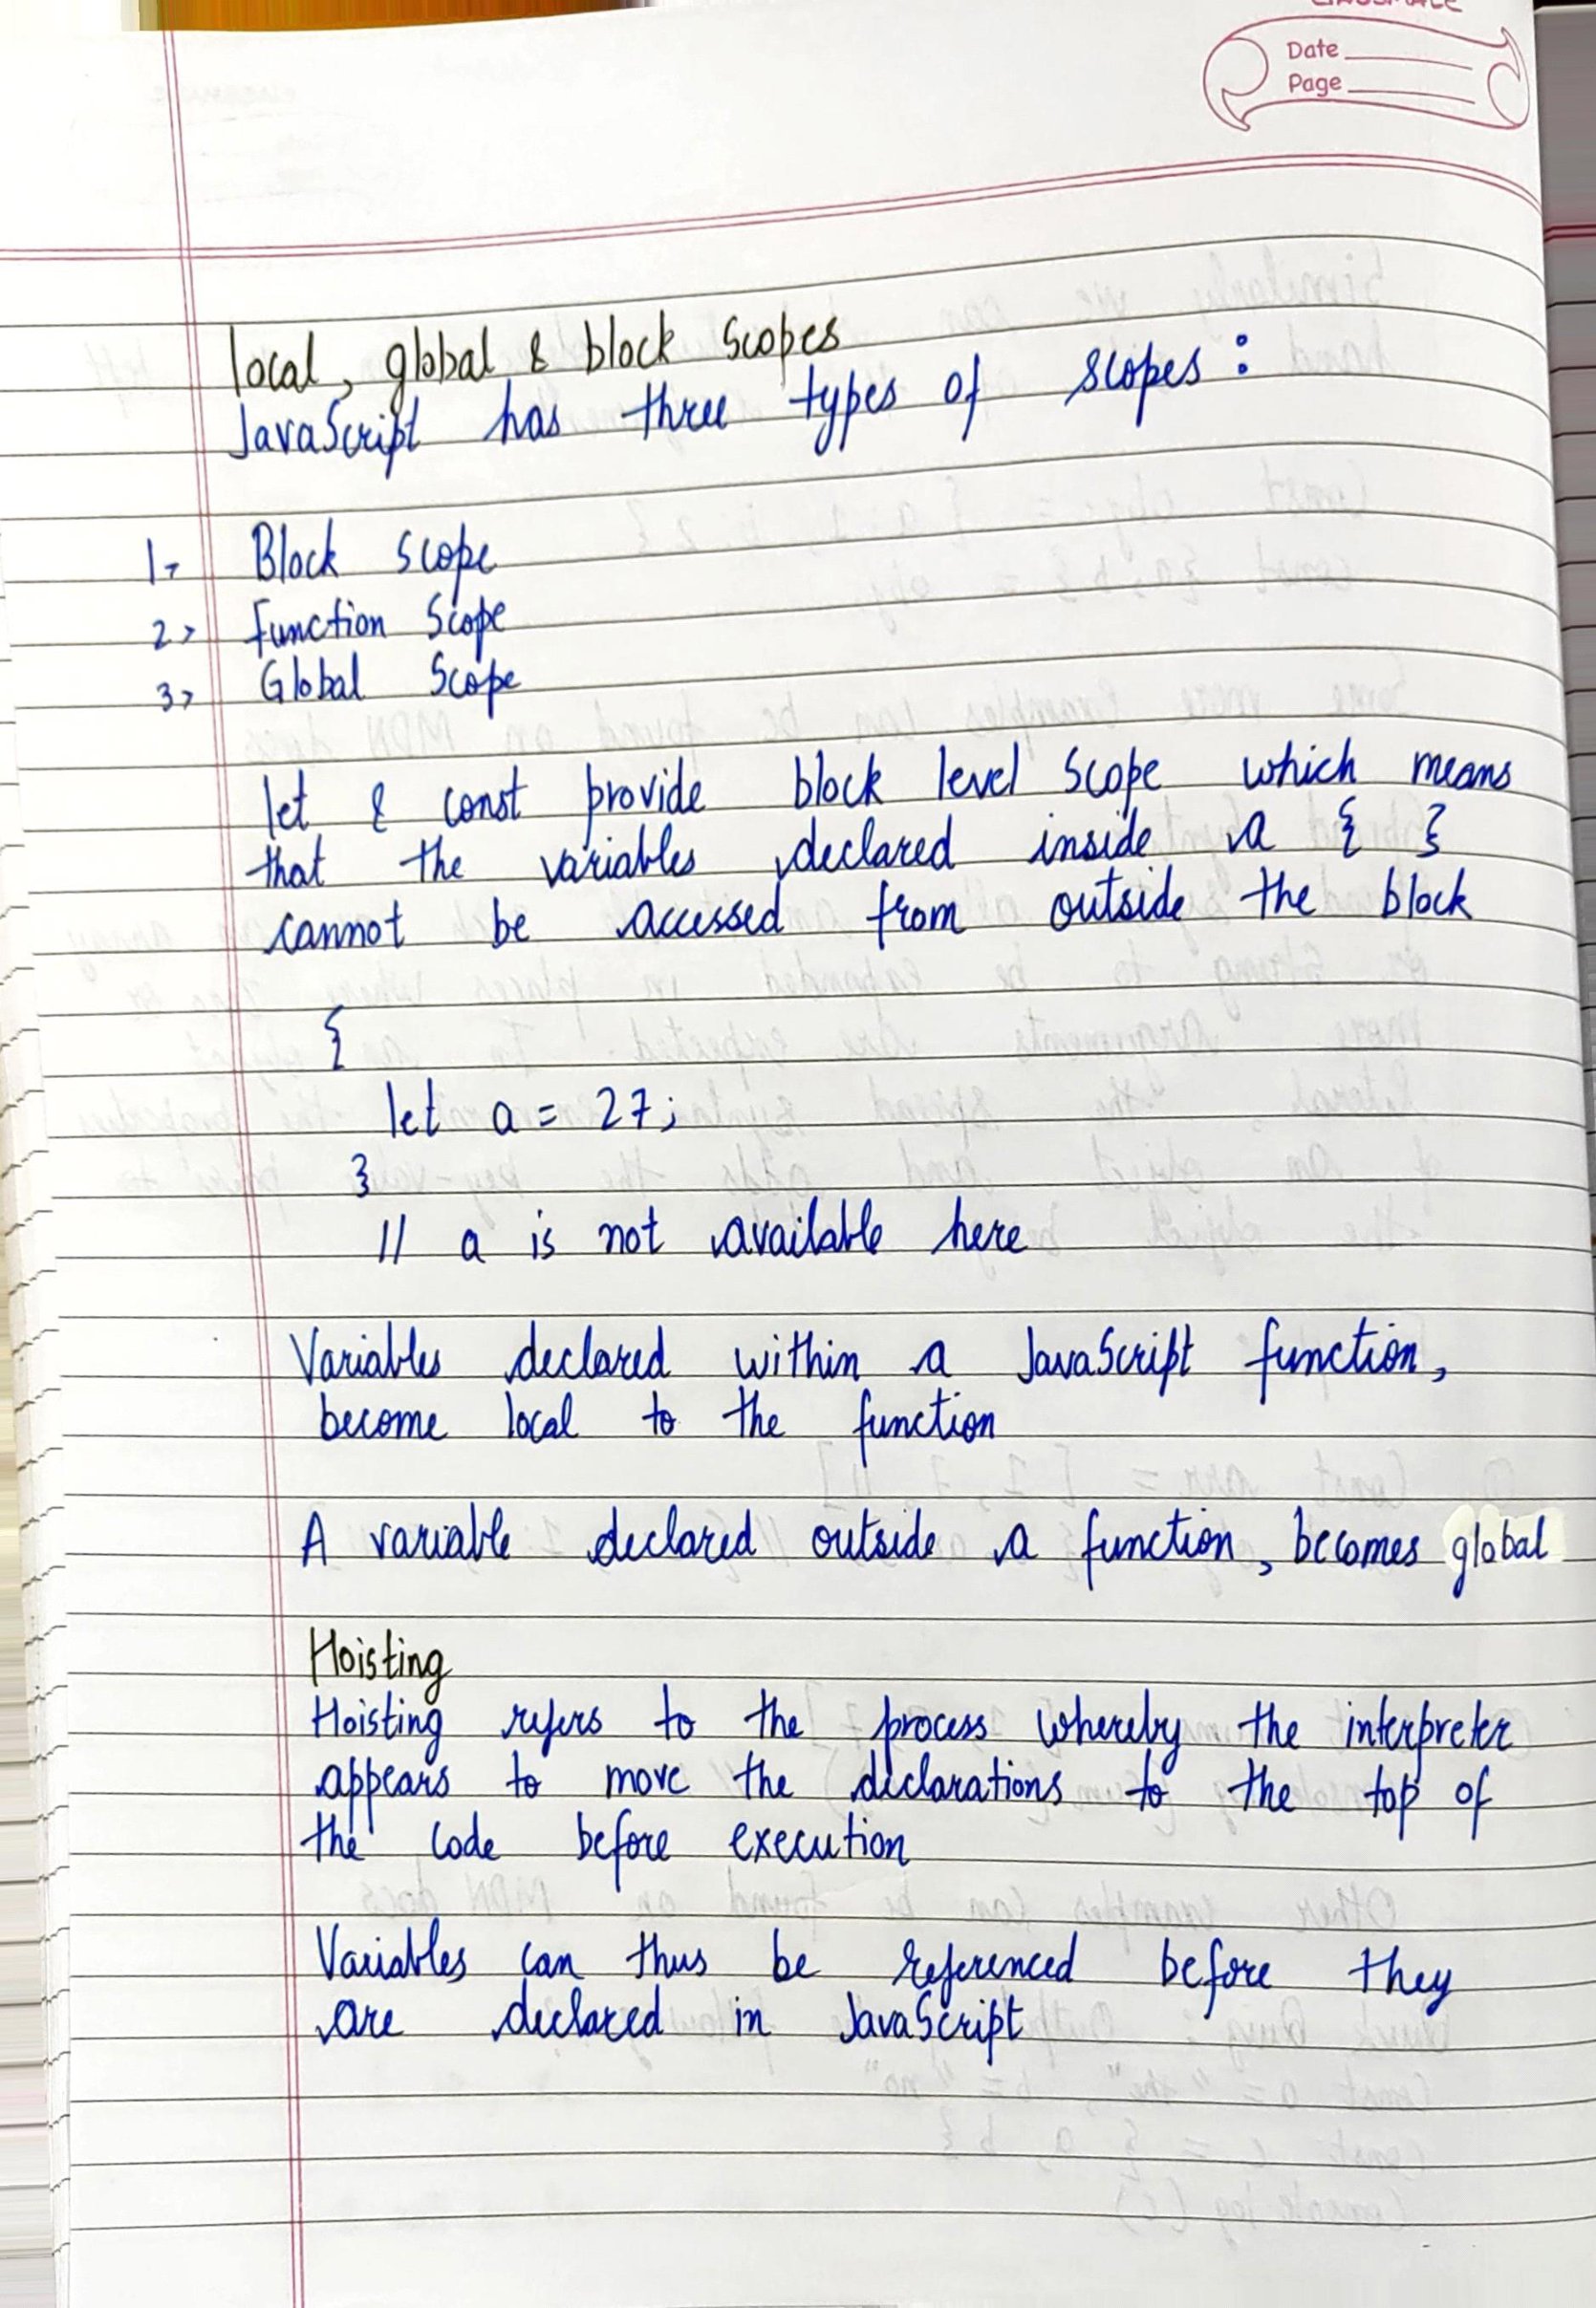 Date
Page
local, global & block scopes
JavaScript has three types of scopes :
1, Block scope
2, Function Scope
3, Global Scope
let & const provide block level scope which means
that the variables declared inside a { }
cannot be accessed from outside the block
{
let a = 27;
}
// a is not available here
Variables declared within a JavaScript function,
become local to the function
A variable declared outside a function, becomes global
Hoisting
Hoisting refers to the process whereby the interpreter
appears to move the declarations to the top of
the code before execution
Variables can thus be referenced before they
are declared in JavaScript